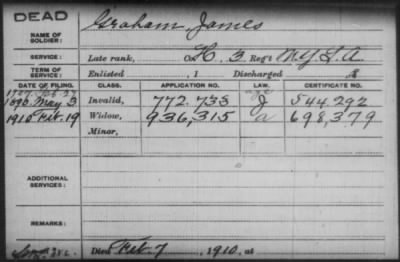 DEAD
NAME OF SOLDIER: Graham, James
SERVICE: Late rank, Co H. 3. Reg't N.Y. L. A.
TERM OF SERVICE: Enlisted , 1 Discharged , 1
DATE OF FILING. CLASS. APPLICATION NO. LAW. CERTIFICATE NO.
1890. May. 3 Invalid, 772.733 J 544.292
1910 Feb. 19 Widow, 936,315 a 698,379
Minor,
ADDITIONAL SERVICES:
REMARKS:
Died Feb. 7 , 1910, at